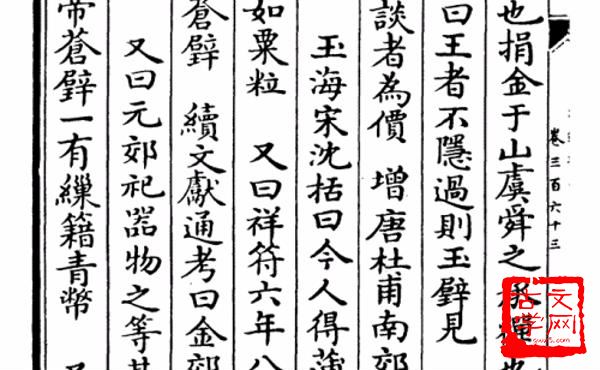 卷三百六十三
也捐金于山虞舜之承禪也
曰王者不隱過則玉璧見
談者為價 增唐杜甫南郊
玉海宋沈括曰今人得蒲
如粟粒 又曰祥符六年八
蒼璧 續文獻通考曰金郊
又曰元郊祀器物之等其
帝蒼璧一有繅籍青幣
古文学网